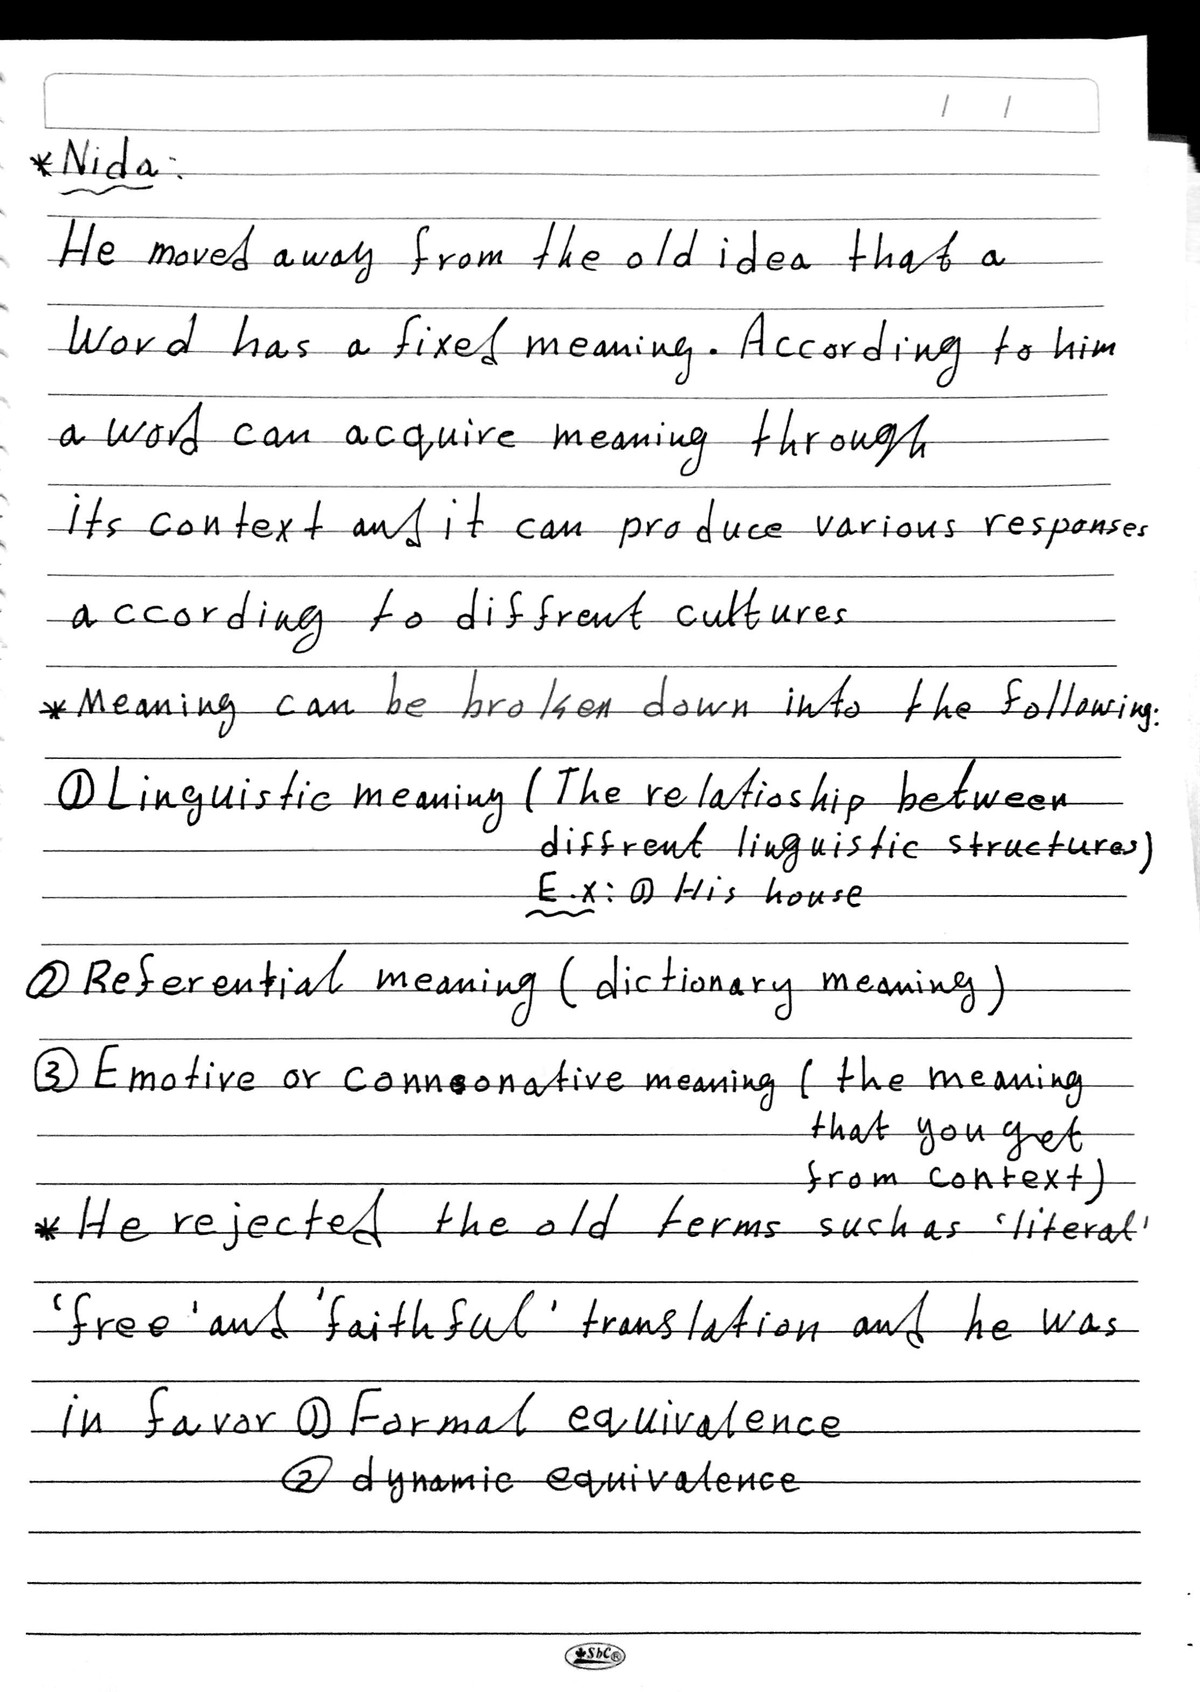 / /
*Nida:
He moved away from the old idea that a
Word has a fixed meaning. According to him
a word can acquire meaning through
its context and it can produce various responses
according to diffrent cultures
*Meaning can be broken down into the following:
① Linguistic meaning (The relatioship between
diffrent linguistic structures)
E.x: ① His house
② Referential meaning (dictionary meaning)
③ Emotive or connsonative meaning (the meaning
that you get
from context)
* He rejected the old terms such as 'literal'
'free' and 'faithful' translation and he was
in favor ① Formal equivalence
② dynamic equivalence
SbC®